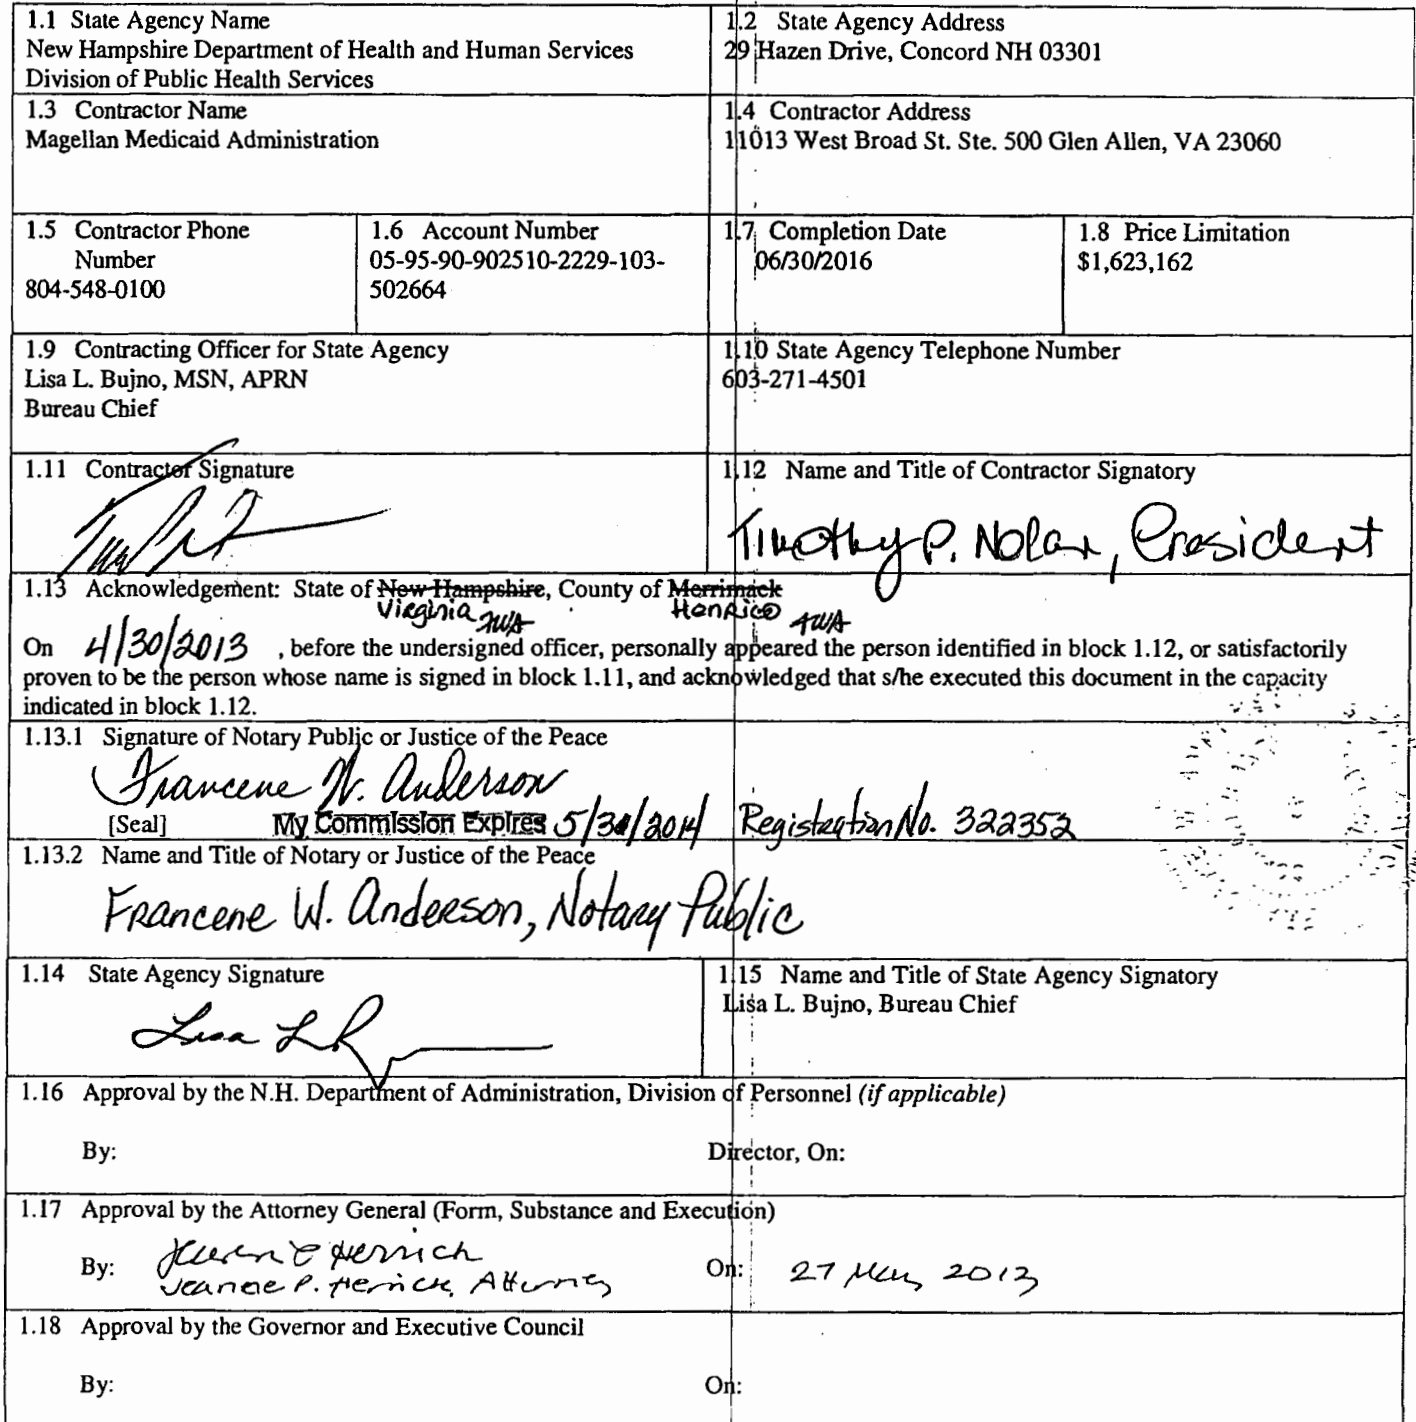 1.1 State Agency Name
New Hampshire Department of Health and Human Services
Division of Public Health Services
1.2 State Agency Address
29 Hazen Drive, Concord NH 03301
1.3 Contractor Name
Magellan Medicaid Administration
1.4 Contractor Address
11013 West Broad St. Ste. 500 Glen Allen, VA 23060
1.5 Contractor Phone
Number
804-548-0100
1.6 Account Number
05-95-90-902510-2229-103-
502664
1.7 Completion Date
06/30/2016
1.8 Price Limitation
$1,623,162
1.9 Contracting Officer for State Agency
Lisa L. Bujno, MSN, APRN
Bureau Chief
1.10 State Agency Telephone Number
603-271-4501
1.11 Contractor Signature
1.12 Name and Title of Contractor Signatory
Timothy P. Nolan, President
1.13 Acknowledgement: State of New Hampshire, County of Merrimack
Virginia FWA Henrico FWA
On 4/30/2013, before the undersigned officer, personally appeared the person identified in block 1.12, or satisfactorily
proven to be the person whose name is signed in block 1.11, and acknowledged that s/he executed this document in the capacity
indicated in block 1.12.
1.13.1 Signature of Notary Public or Justice of the Peace
Francene W. Anderson
[Seal] My Commission Expires 5/31/2014 Registration No. 322352
1.13.2 Name and Title of Notary or Justice of the Peace
Francene W. Anderson, Notary Public
1.14 State Agency Signature
Lisa L
1.15 Name and Title of State Agency Signatory
Lisa L. Bujno, Bureau Chief
1.16 Approval by the N.H. Department of Administration, Division of Personnel (if applicable)
By: Director, On:
1.17 Approval by the Attorney General (Form, Substance and Execution)
By: Herrick
Jeanne P. Herrick, Attorney
On: 27 May 2013
1.18 Approval by the Governor and Executive Council
By: On: